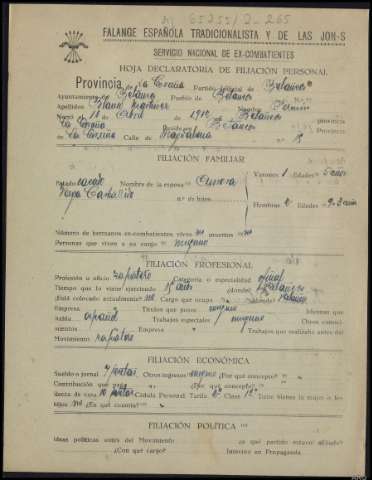 65255/2-265
FALANGE ESPAÑOLA TRADICIONALISTA Y DE LAS JON-S
SERVICIO NACIONAL DE EX-COMBATIENTES
HOJA DECLARATORIA DE FILIACIÓN PERSONAL
Provincia de La Coruña Partido judicial de Betanzos
Ayuntamiento de Betanzos Pueblo de Betanzos
Apellidos Nombre Fermín
Nació el 18 de Abril de 1912 en Betanzos Provincia
La Coruña Residencia Betanzos Provincia
de La Coruña Calle de Magdalena n.º 8
FILIACIÓN FAMILIAR
Estado casado Nombre de la esposa Aurora Varones 1 Edades 5 años
n.º de hijos Hembras 2 Edades
Número de hermanos ex-combatientes vivos no muertos no
Personas que viven a su cargo ninguno
FILIACIÓN PROFESIONAL
Profesión u oficio zapatero Categoría o especialidad oficial
Tiempo que la viene ejerciendo 15 años ¿donde? Betanzos
¿Está colocado actualmente? Cargo que ocupa ¿donde?
Empresa Títulos que posee ninguno Idiomas que
habla español Trabajos especiales ninguno Otros conoci-
mientos Empresa Trabajos que realizaba antes del
Movimiento zapatero
FILIACIÓN ECONÓMICA
Sueldo o jornal 7 pesetas Otros ingresos ninguno ¿Por qué concepto?
Contribución que paga ¿Por qué concepto?
Renta de casa 10 pesetas Cédula Personal Tarifa Clase Tiene bienes la mujer o los
hijos no ¿En qué cuantía?
FILIACIÓN POLÍTICA
Ideas políticas antes del Movimiento ¿a qué partido estuvo afiliado?
¿Con qué cargo? Intervino en Propaganda